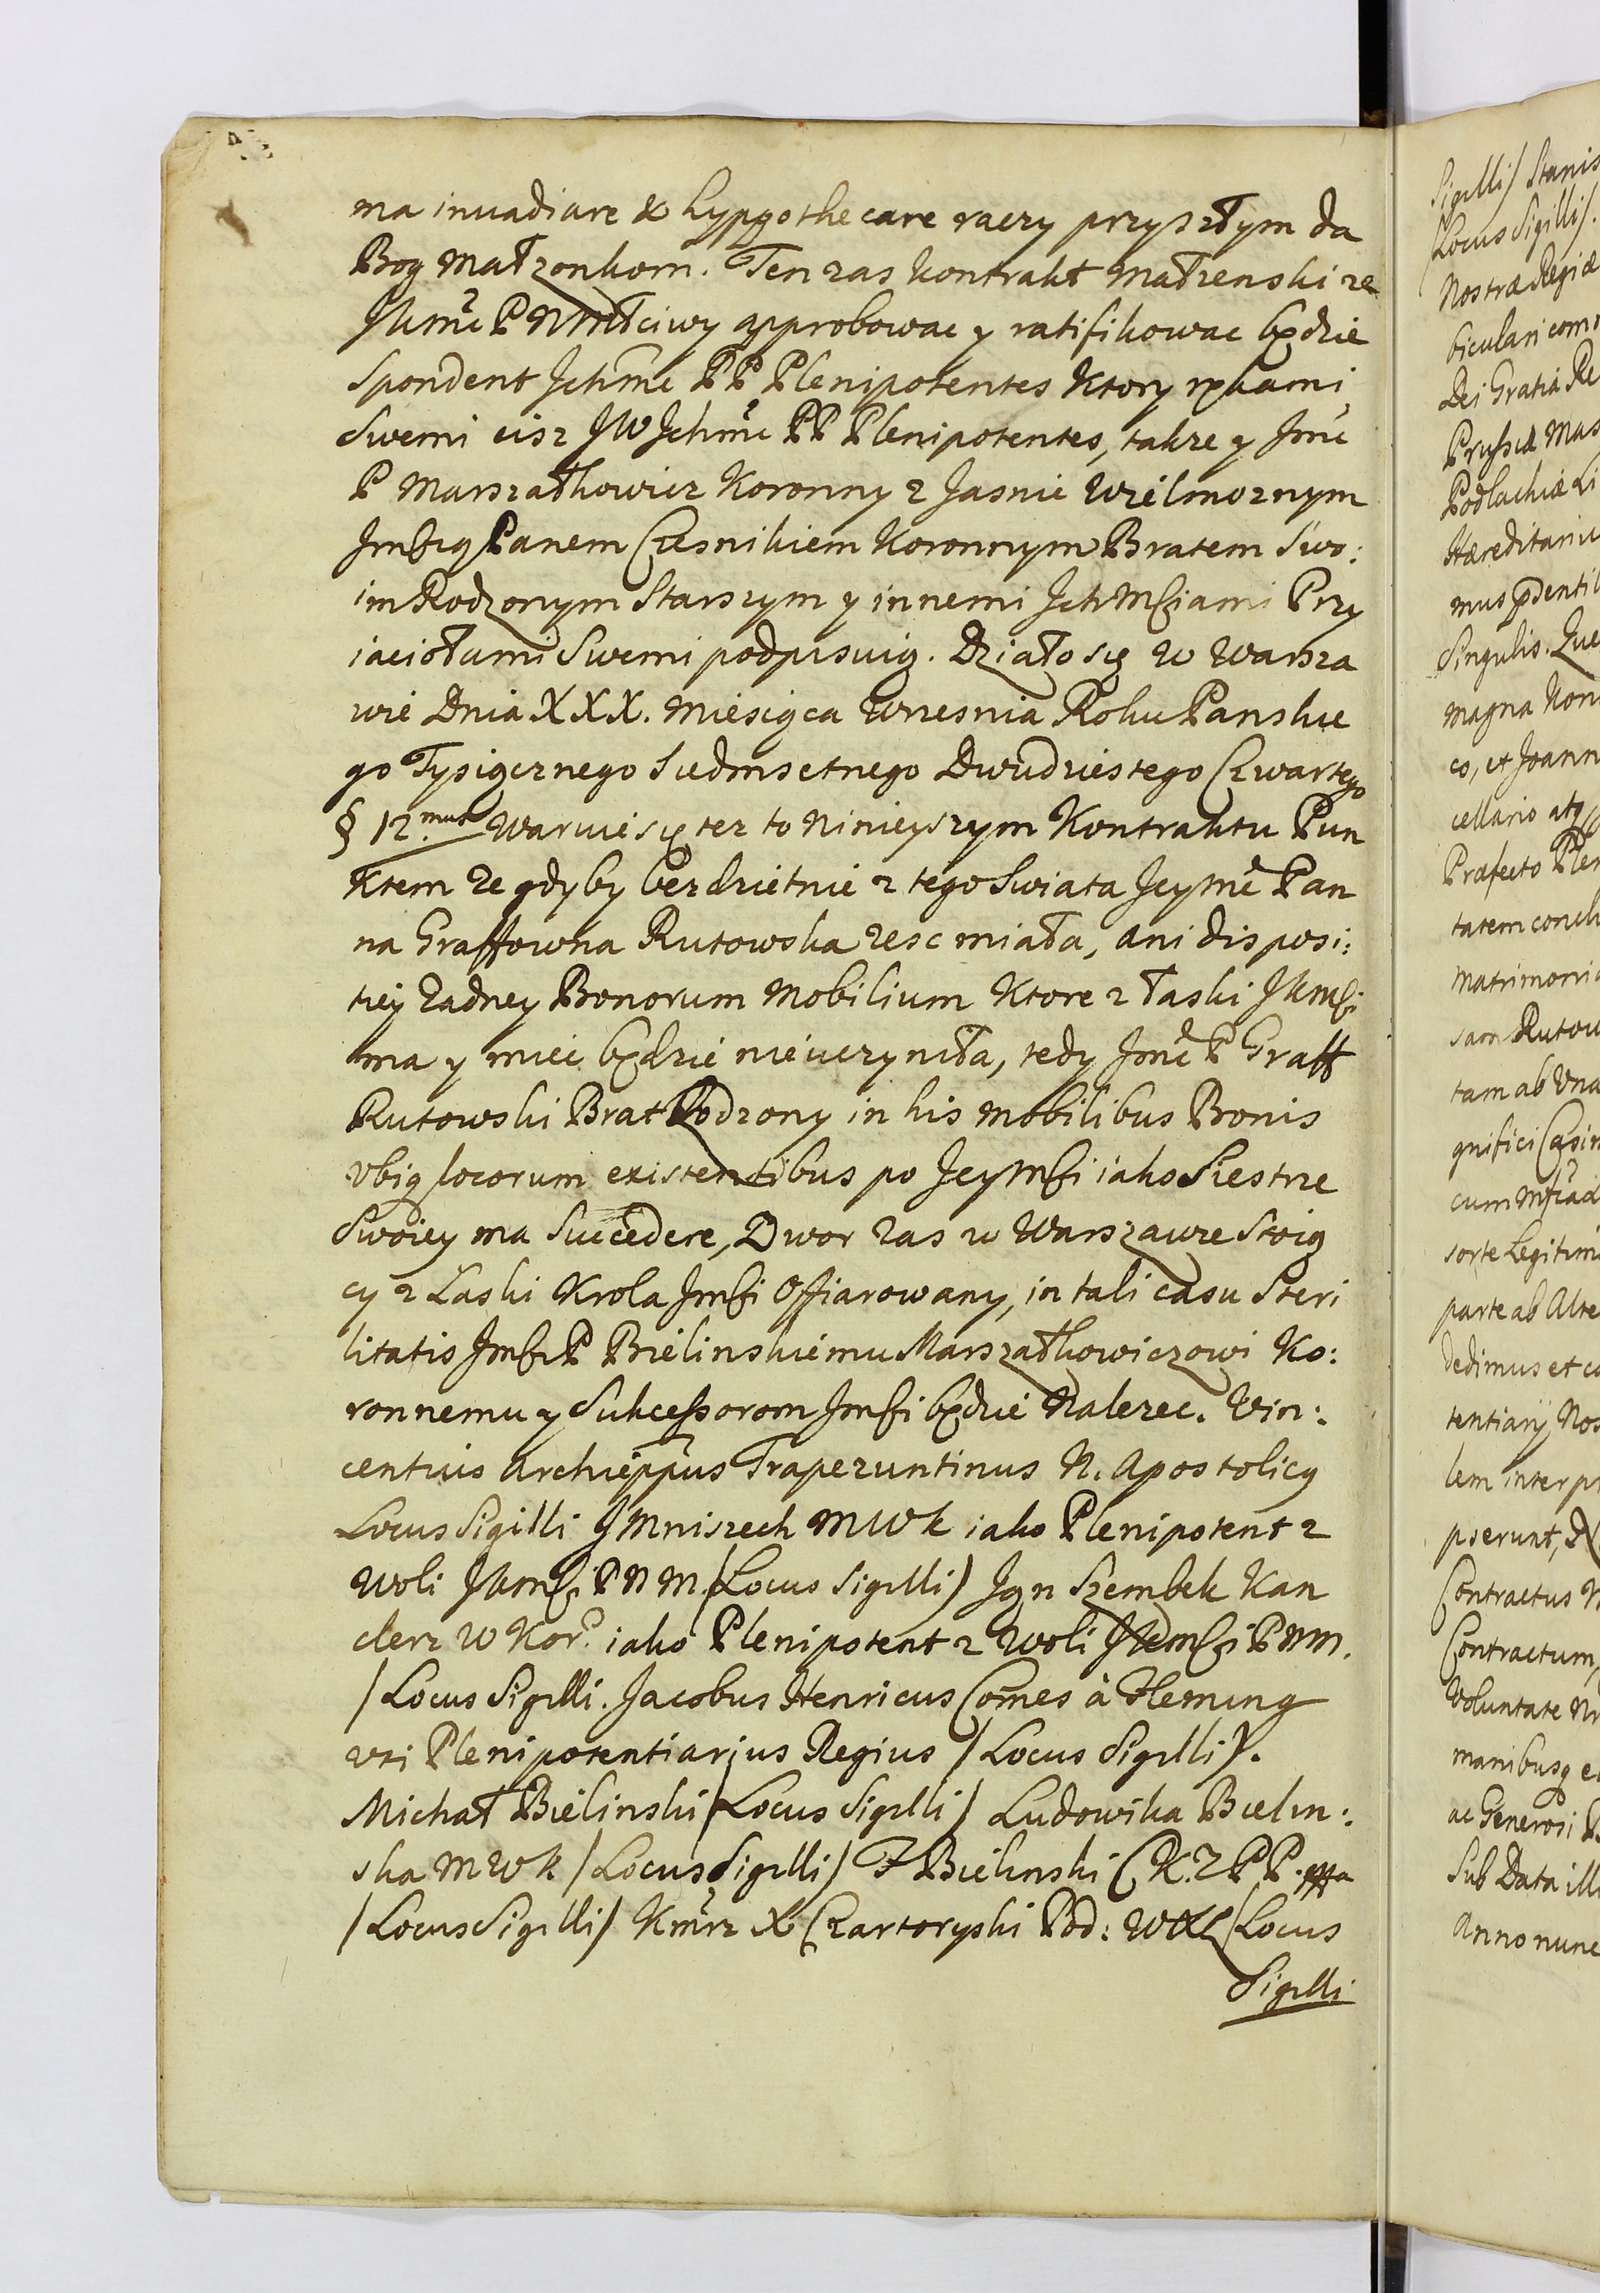 ma invadiare & hyppothecare raczy przyszłym da
Bog małzonkom. Ten zas kontrakt małzenski ze
JKmć P N Młciwy approbowac y ratifikowac będzie
spondent Ichmć PP Plenipotentes Ktory rękami
Swemi cisz JW Ichmć PP Plenipotentes, takze y Jmć
P Marszałkowicz Koronny z Jasnie Wielmoznym
Jmścią Panem Czesnikiem Koronnym Bratem Swo:
im Rodzonym Starszym y innemi Ichmściami Przy
iaciołami Swemi podpisuią. Działo się w Warsza
wie Dnia XXX. Miesiąca Wrzesnia Roku Panskie
go Tysiącznego Siedmsetnego Dwudziestego Czwartego
§ 12.mus Waruie się tez to ninieyszym Kontraktu Pun
Ktem ze gdyby bezdzietnie z tego Swiata Jeymć Pan
na Graffowna Rutowska zesc miała, ani disposi:
tiey zadney Bonorum Mobilium Ktore z łaski JKmści
ma y miec będzie nieuczyniła, tedy Jmć P Graff
Rutowski Brat Rodzony in his mobilibus Bonis
Vbiq locorum existentibus po Jeymści iako Siestrze
Swoiey ma Succedere, Dwor zas w Warszawie stoią
cy z Łaski Krola Jmści Offiarowany, in tali casu Steri
litatis Jmści P Bielinskiemu Marszałkowiczowi Ko:
ronnemu y Sukcessorom Jmści będzie Nalezec. Vin:
centius Archieppus Trapezuntinus N. Apostolicy
Locus Sigilli J Mniszech MWK iako Plenipotent z
Woli JKmści PNM. /Locus Sigilli/ Jan Szembek Kan
clerz W Kor. iako Plenipotent z Woli JKmści PNM.
/Locus Sigilli. Jacobus Henricus Comes à Fleming
uti Plenipotentiarius Regius /Locus Sigilli/.
Michał Bielinski /Locus Sigilli/ Ludowika Bielin:
ska MWK /Locus Sigilli/ F Bielinski C K. Z P P.
/Locus Sigilli/ Kmrz X Czartoryski Pod: WXL /Locus
Sigilli
Sigilli/ Stanis
/Locus Sigilli/.
Nostræ Regiæ
biculari com
Dei Gratia Re
Prussiæ Mas
Podlachiæ Li
Hæreditariu
mus
Singulis. Que
magna Non
eo, et Joann
cellario atq
Præfecto Plen
tatem concl
Matrimonia
sam Rutow
tam ab Una
gnifici Casi
cum
sorte Legitim
parte ab Alte
dedimus et co
tentiarij Nos
lem inter p
pserunt,
Contractus N
Contractum,
Voluntate N
manibusq e
ac Generosi
Sub Data ill
Anno nunc